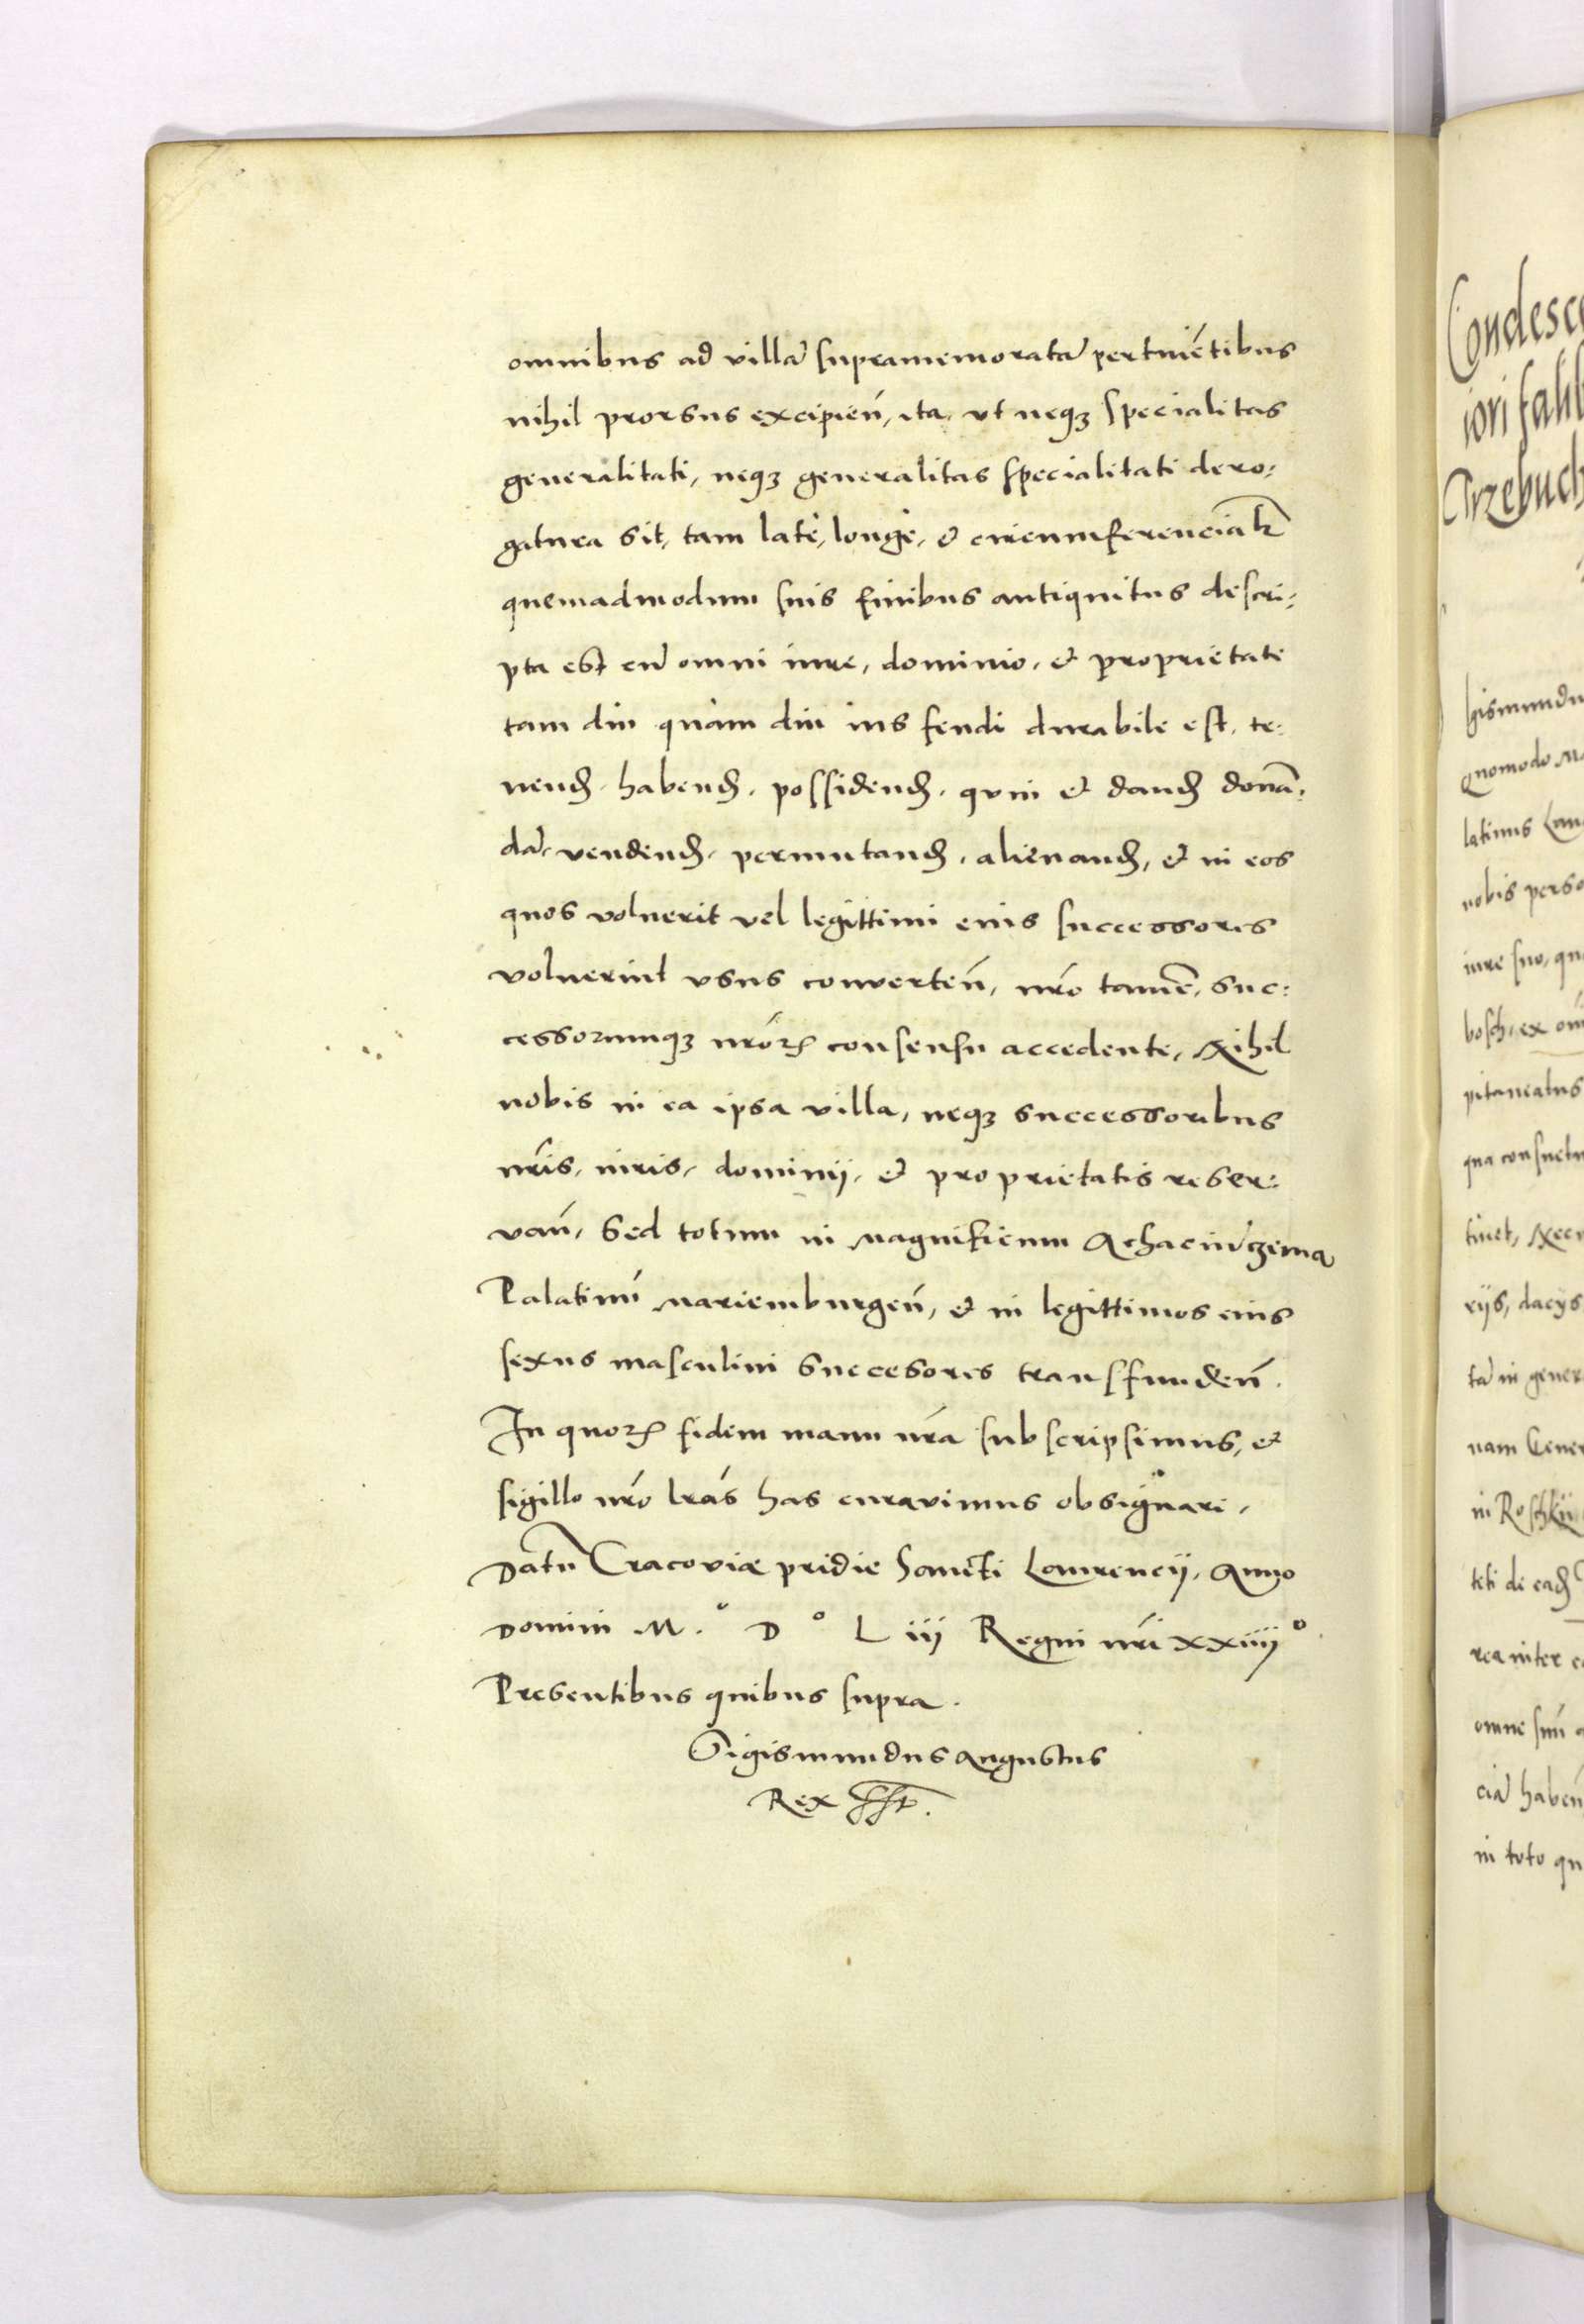 omnibus ad villā supramemoratā pertinētibus
nihil prorsus excipień, ita, vt neqꝫ specialitas
generalitati, neqꝫ generalitas specialitati dero:
gatura sit, tam latè, longè, & circumferencialr̄
quemadmodum suis finibus antiquitus descri:
pta est cū omni iure, dominio, et proprietate
tam diu quàm diu ius feudi durabile est, te:
nend̄, habend̄, possidend̄, quin et dand̄ donā:
dā, vendend̄, permutand̄, alienand̄, et in eos
quos voluerit vel legittimi eius successores
voluerint vsus converteń, nr̄o tamē, suc:
cessorumqꝫ nr̄oꝝ consensu accedente, Nihil
nobis in ea ipsa villa, neqꝫ successoribus
nr̄is, iuris, dominij, et proprietatis reser:
vań, sed totum in Magnificum Achaciū Czema
Palatinū Mariemburgeń, et in legittimos eius
sexus masculini succesores transfundeń.
In quoꝝ fidem manu nr̄a subscripsimus, et
sigillo nr̄o lr̄as has curavimus obsignari,
Datū Cracoviæ pridie Sancti Laurencij, Anno
Domini M.º Dº L iij Regni nr̄i xxiiijº.
Presentibus quibus supra.
Sigismundus Augustus
Rex sst.
Condesce
iori fali
Trzebuch
hismundu
quomodo Ma
latinus Lan
nobis perso
iure suo, qu
bosch, ex om̄
pitaneatus
qua consuetu
tinet, Nec
rijs, dacijs
tā in gener
nam Cener
in Roschki
teti de ead̄
rea inter e
omne suū
ciā habeń
in toto qu